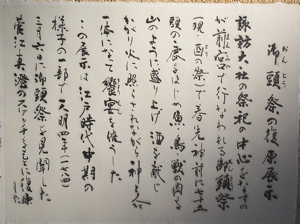 御頭祭の復原展示
おんとう
諏訪大社の祭祀の中心をなすの
が前宮で行なわれて御頭祭
(現 酉の祭)で春先神前に七十五
頭の鹿をはじめ魚、鳥獣の肉を
山のように盛り上げ酒を献じ
かがり火に照されながら神と人が
一体になって饗宴を催した
この展示は江戸時代中期の
様子の一部で天明四年(一七八四)
三月六日に御頭祭を見聞した
菅江真澄のスケッチをもとに復原した